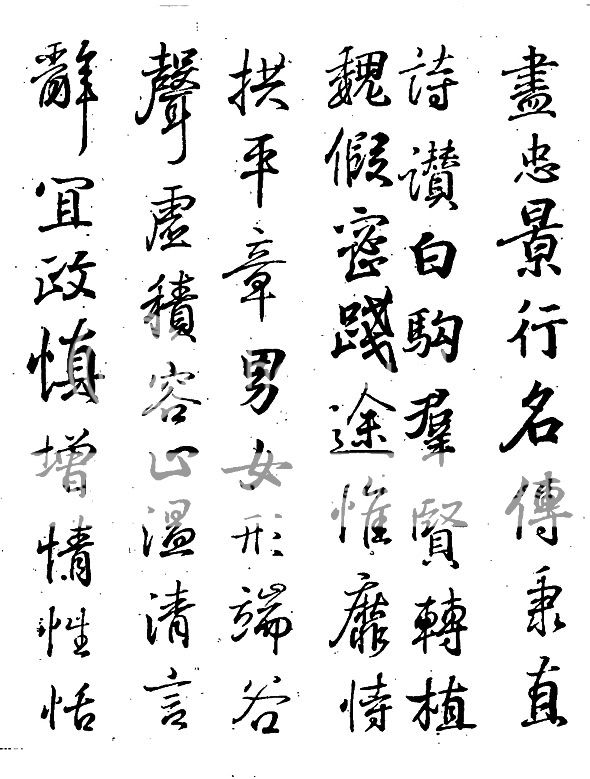 盡忠景行名傳秉直
詩讚白駒羣賢轉植
魏假密踐途惟靡恃
拱平章男女形端谷
聲虛積容止溫清言
辭宜政慎增情性恬